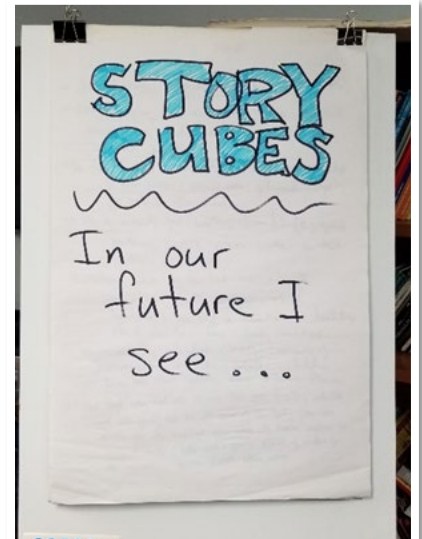 STORY
CUBES
In our
future I
see...